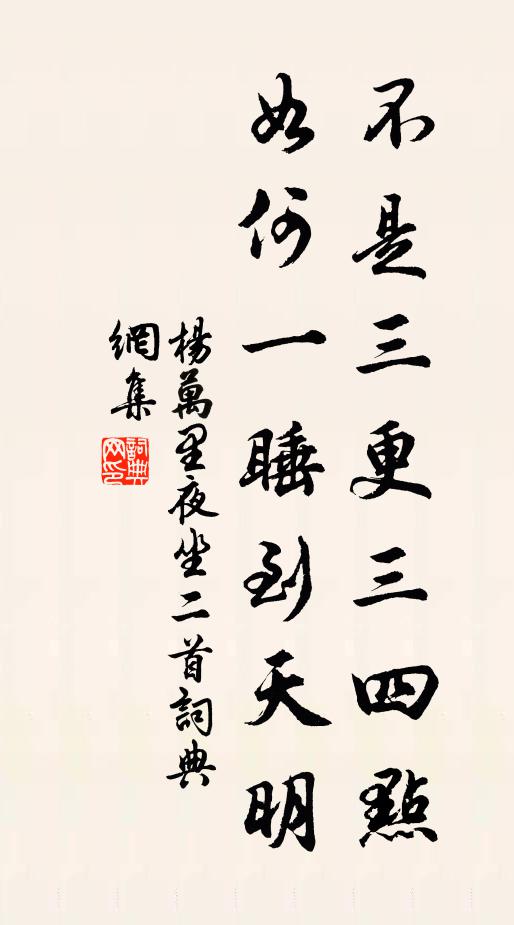 不是三更三四點
如何一睡到天明
楊萬里夜坐二首詞典
網集
詞典
网印